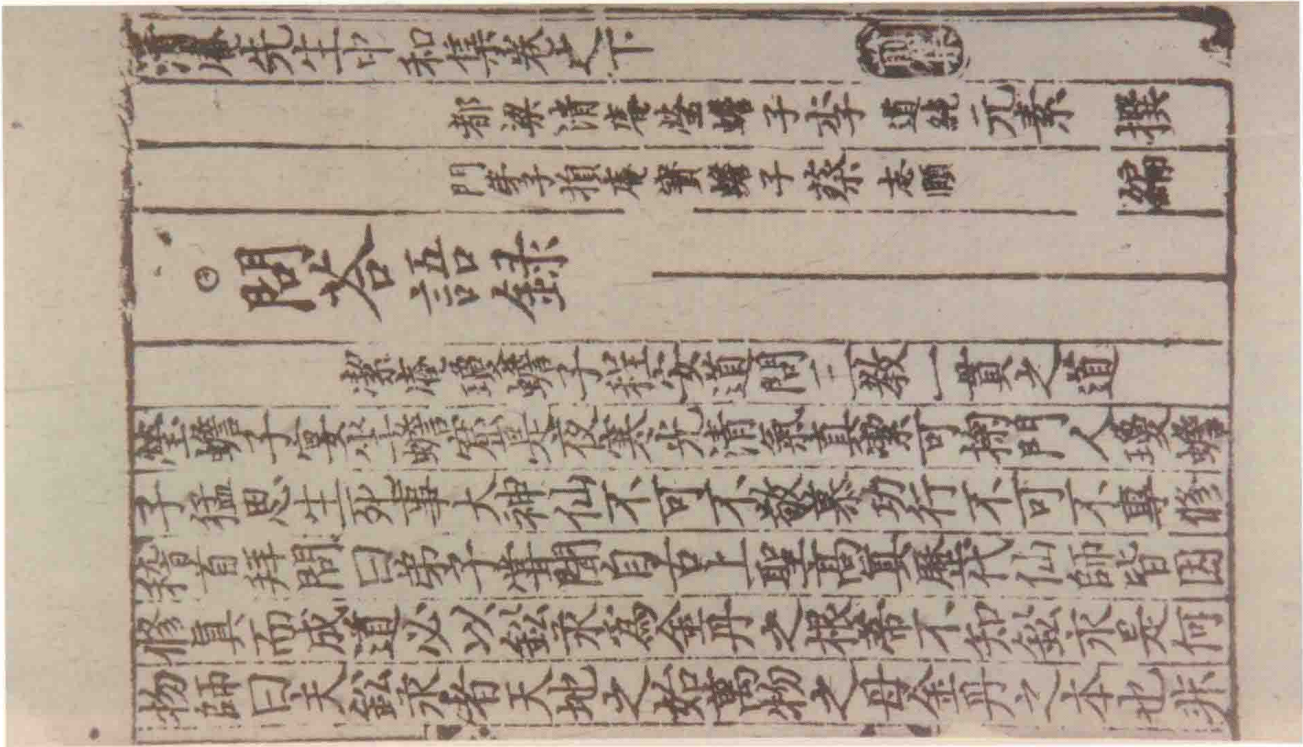 清庵先生中和集卷之下
都梁清庵瑩蟾子李道純元素 撰
門弟子損庵寶蟾子蔡志頤 編
問荅語錄
潔庵瓊蟾子程安道問三教一貫之道
瑩蟾子宴坐蟾窟是夜寒光清氣真潔可掬門人瓊蟾
子猛思生死事大神仙不可不敬慕功行不可不專修
稽首拜問曰弟子嘗聞自古上聖高真歷代仙師皆因
修真而成道必以鈆汞為金丹之根蔕不知鈆汞是何
物師曰夫鈆汞者天地之始萬物之母金丹之本也非